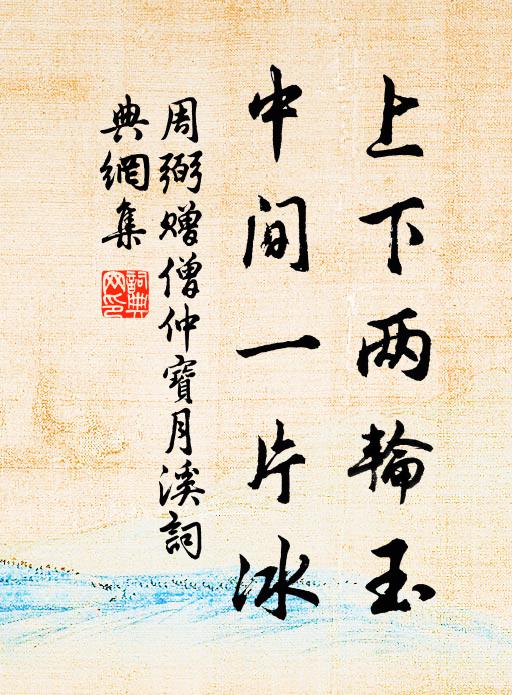 上下两輪玉
中间一片冰
周弼贈僧仲寶月溪詞
典網集
詞典网印